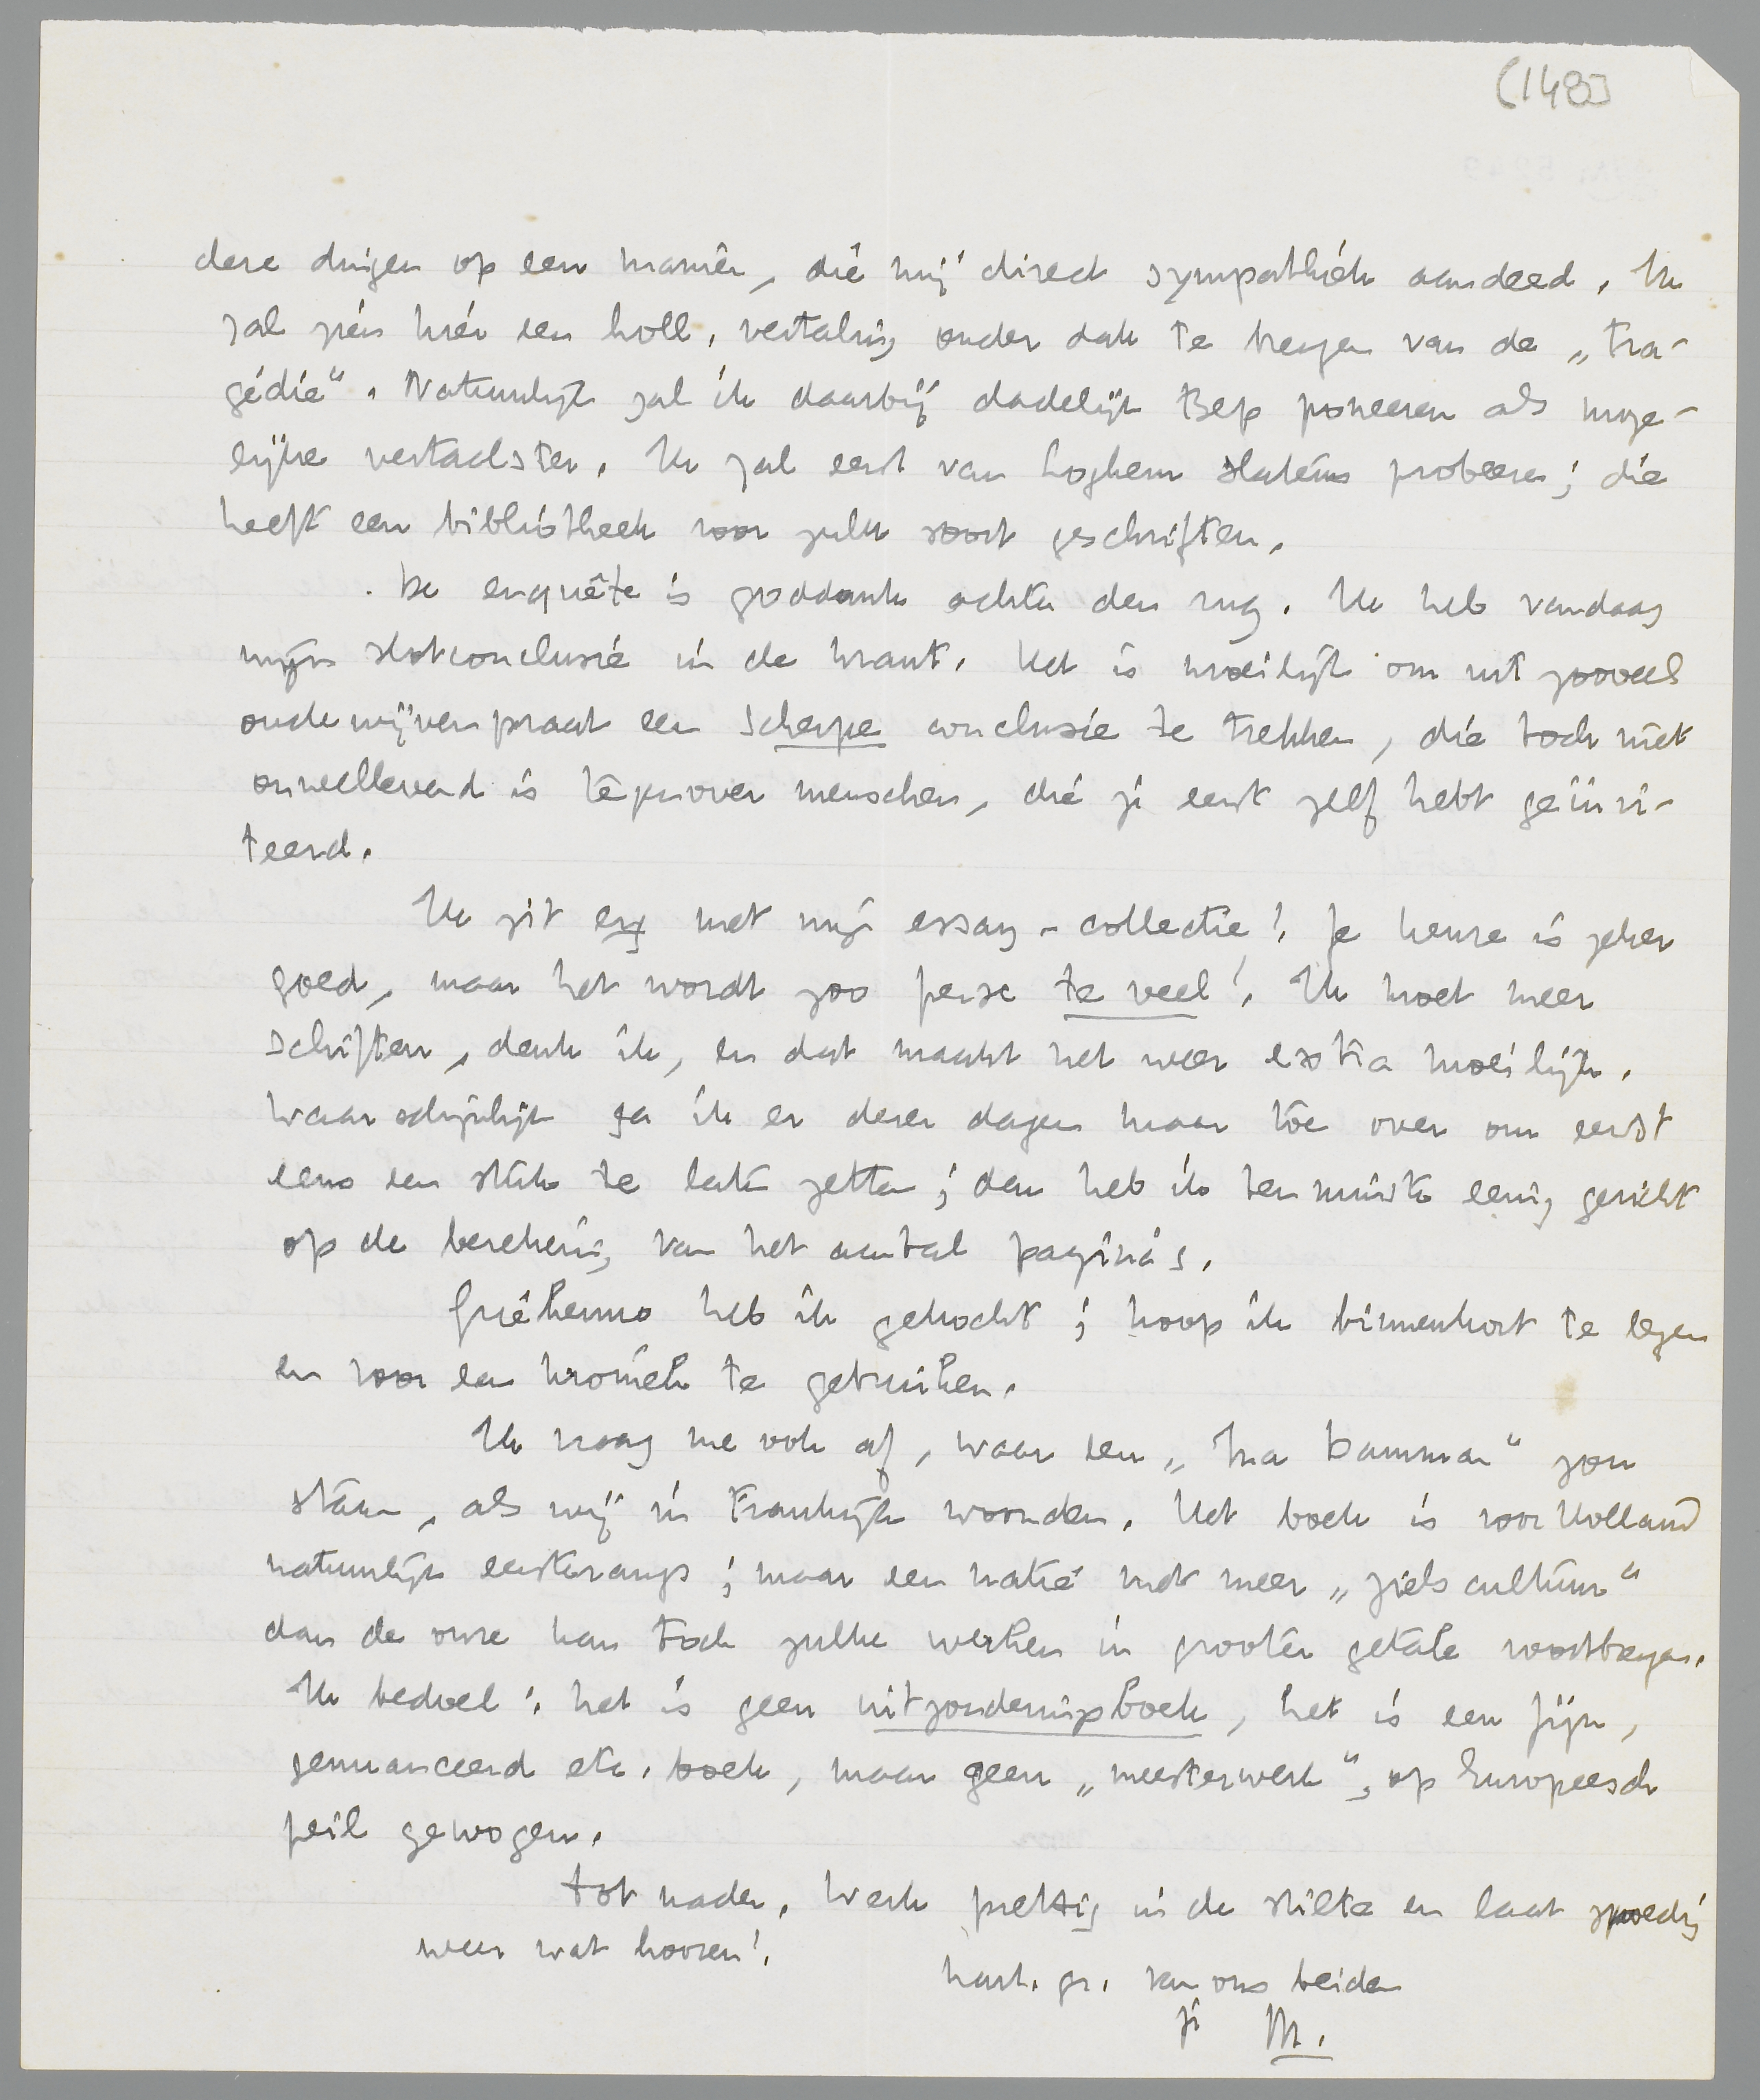 (148)
dere dingen op een manier, die mij direct sympathiek aandeed. Ik
zal zien hier een holl. vertaling onder dak te krijgen van de „tra-
gédie”. Natuurlijk zal ik daarbij dadelijk Bep poneeren als moge-
lijke vertaalster. Ik zal eerst van Loghem Slaterus probeeren; die
heeft een bibliotheek voor zulk soort geschriften.
De enquête is goddank achter den rug. Ik heb vandaag
mijn slotconclusie in de krant. Het is moeilijk om uit zooveel
oude wijvenpraat een scherpe conclusie te trekken, die toch niet
onwellevend is tegenover menschen, die je eerst zelf hebt geïnvi-
teerd.
Ik zit erg met mijn essay-collectie! Je keuze is zeker
goed, maar het wordt zoo per se te veel! Ik moet meer
schiften, denk ik, en dat maakt het weer extra moeilijk.
Waarschijnlijk ga ik er dezer dagen maar toe over om eerst
eens een stuk te laten zetten; dan heb ik tenminste eenig gezicht
op de berekening van het aantal pagina's.
Guéhenno heb ik gekocht; hoop ik binnenkort te lezen
en voor een kroniek te gebruiken.
Ik vraag me ook af, waar een „Ina Damman” zou
staan, als wij in Frankrijk woonden. Het boek is voor Holland
natuurlijk eersterangs; maar een natie met meer „zielscultuur”
dan de onze kan toch zulke werken in grooten getale voortbrengen.
Ik bedoel: het is geen uitzonderingsboek, het is een fijn,
genuanceerd etc. boek, maar geen „meesterwerk”, op Europeesch
peil gewogen.
Tot nader. Werk prettig in de stilte en laat spoedig
weer wat hooren!
hart. gr. van ons beiden
je M.